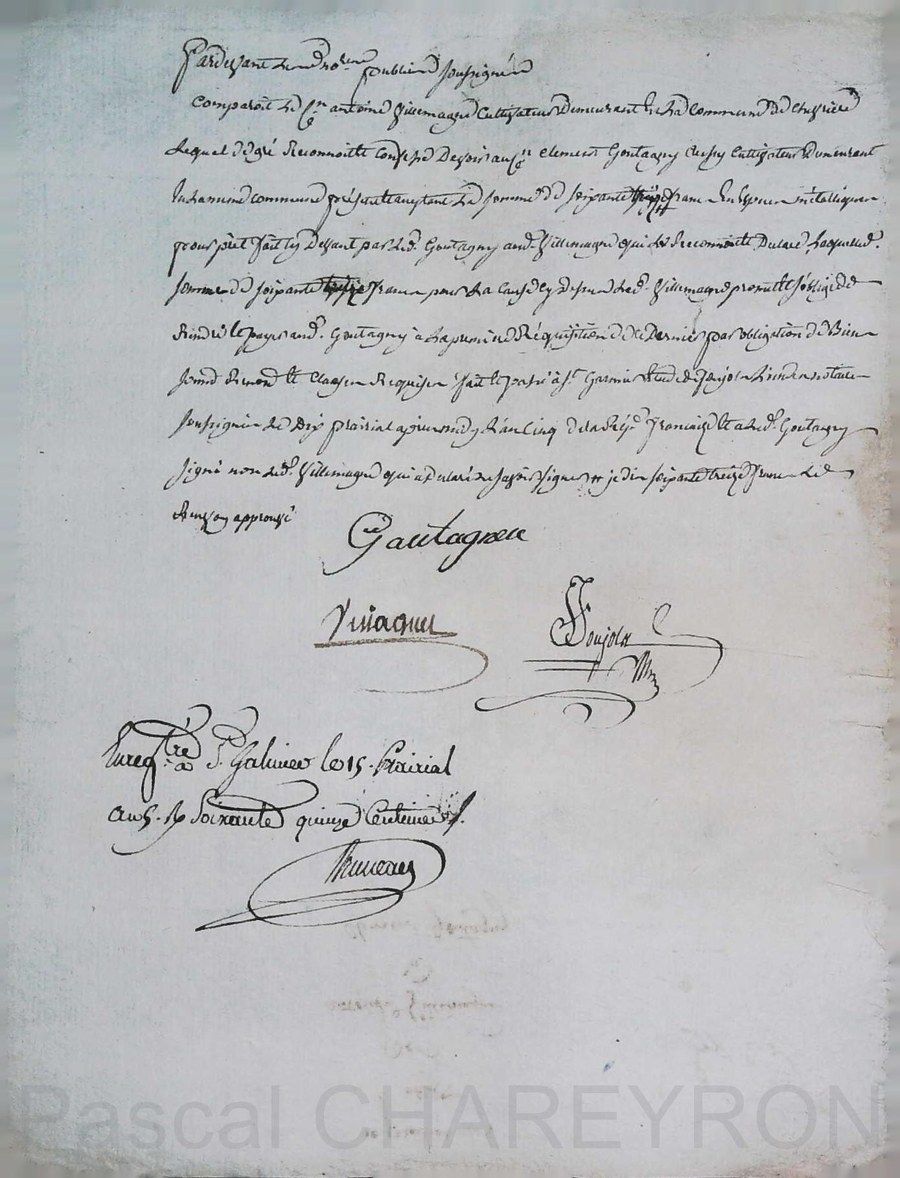 Pardevant le no.re public soussigné
Comparoit le C.en antoine Villemagne Cultivateur demeurant en la commune de Chevrière
Lequel de gré Reconnoit et Confesse Devoir au C.en Clement Goutagny aussy Cultivateur demeurant
En la meme commune présent et acceptant La somme de soixante treize franc En Espece métallique
pour prêt fait cy Devant par led. Goutagny aud. Villemagne qui le Reconnoit et Declare Laquelle
somme de soixante treize francs pour La Cause cy Dessus led. Villemagne promet et s'oblige de
Rendre et payer aud. Goutagny à La premiere Réquisition de ce Dernier par obligation de Biens
soumis Renonce et Clauses Requises fait et passé à S.t Garmier Etude de Ponjolx notaire
soussigné Le Dix prairial après midy L'an Cinq de la Rép. francaise et a led. Goutagny
signé non led. Villemagne qui a declaré ne savoir signer je dis soixante treize francs Le
Renvoy approuvé
Goutagneu
Ponjolx
Enreg.tré à S.t Galmier le 15. Prairial
an 5. R Soixante quinze Centimes
Pascal CHAREYRON